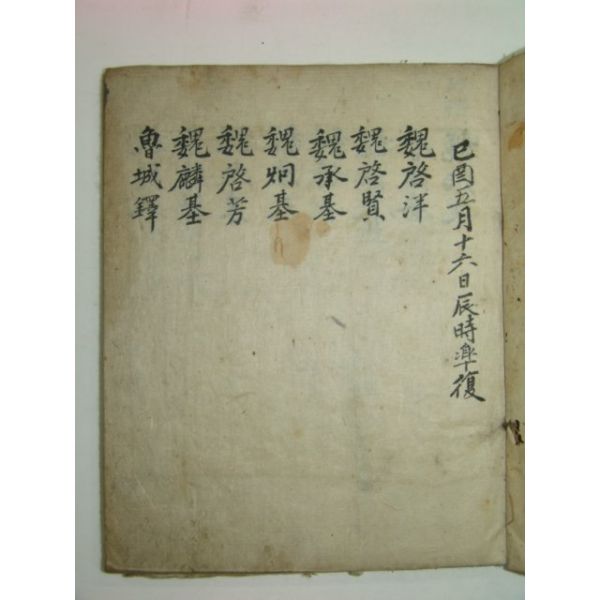 己酉五月十六日辰時率復
魏啓泮
魏啓賢
魏承基
魏炯基
魏啓芳
魏麟基
魯城鐸